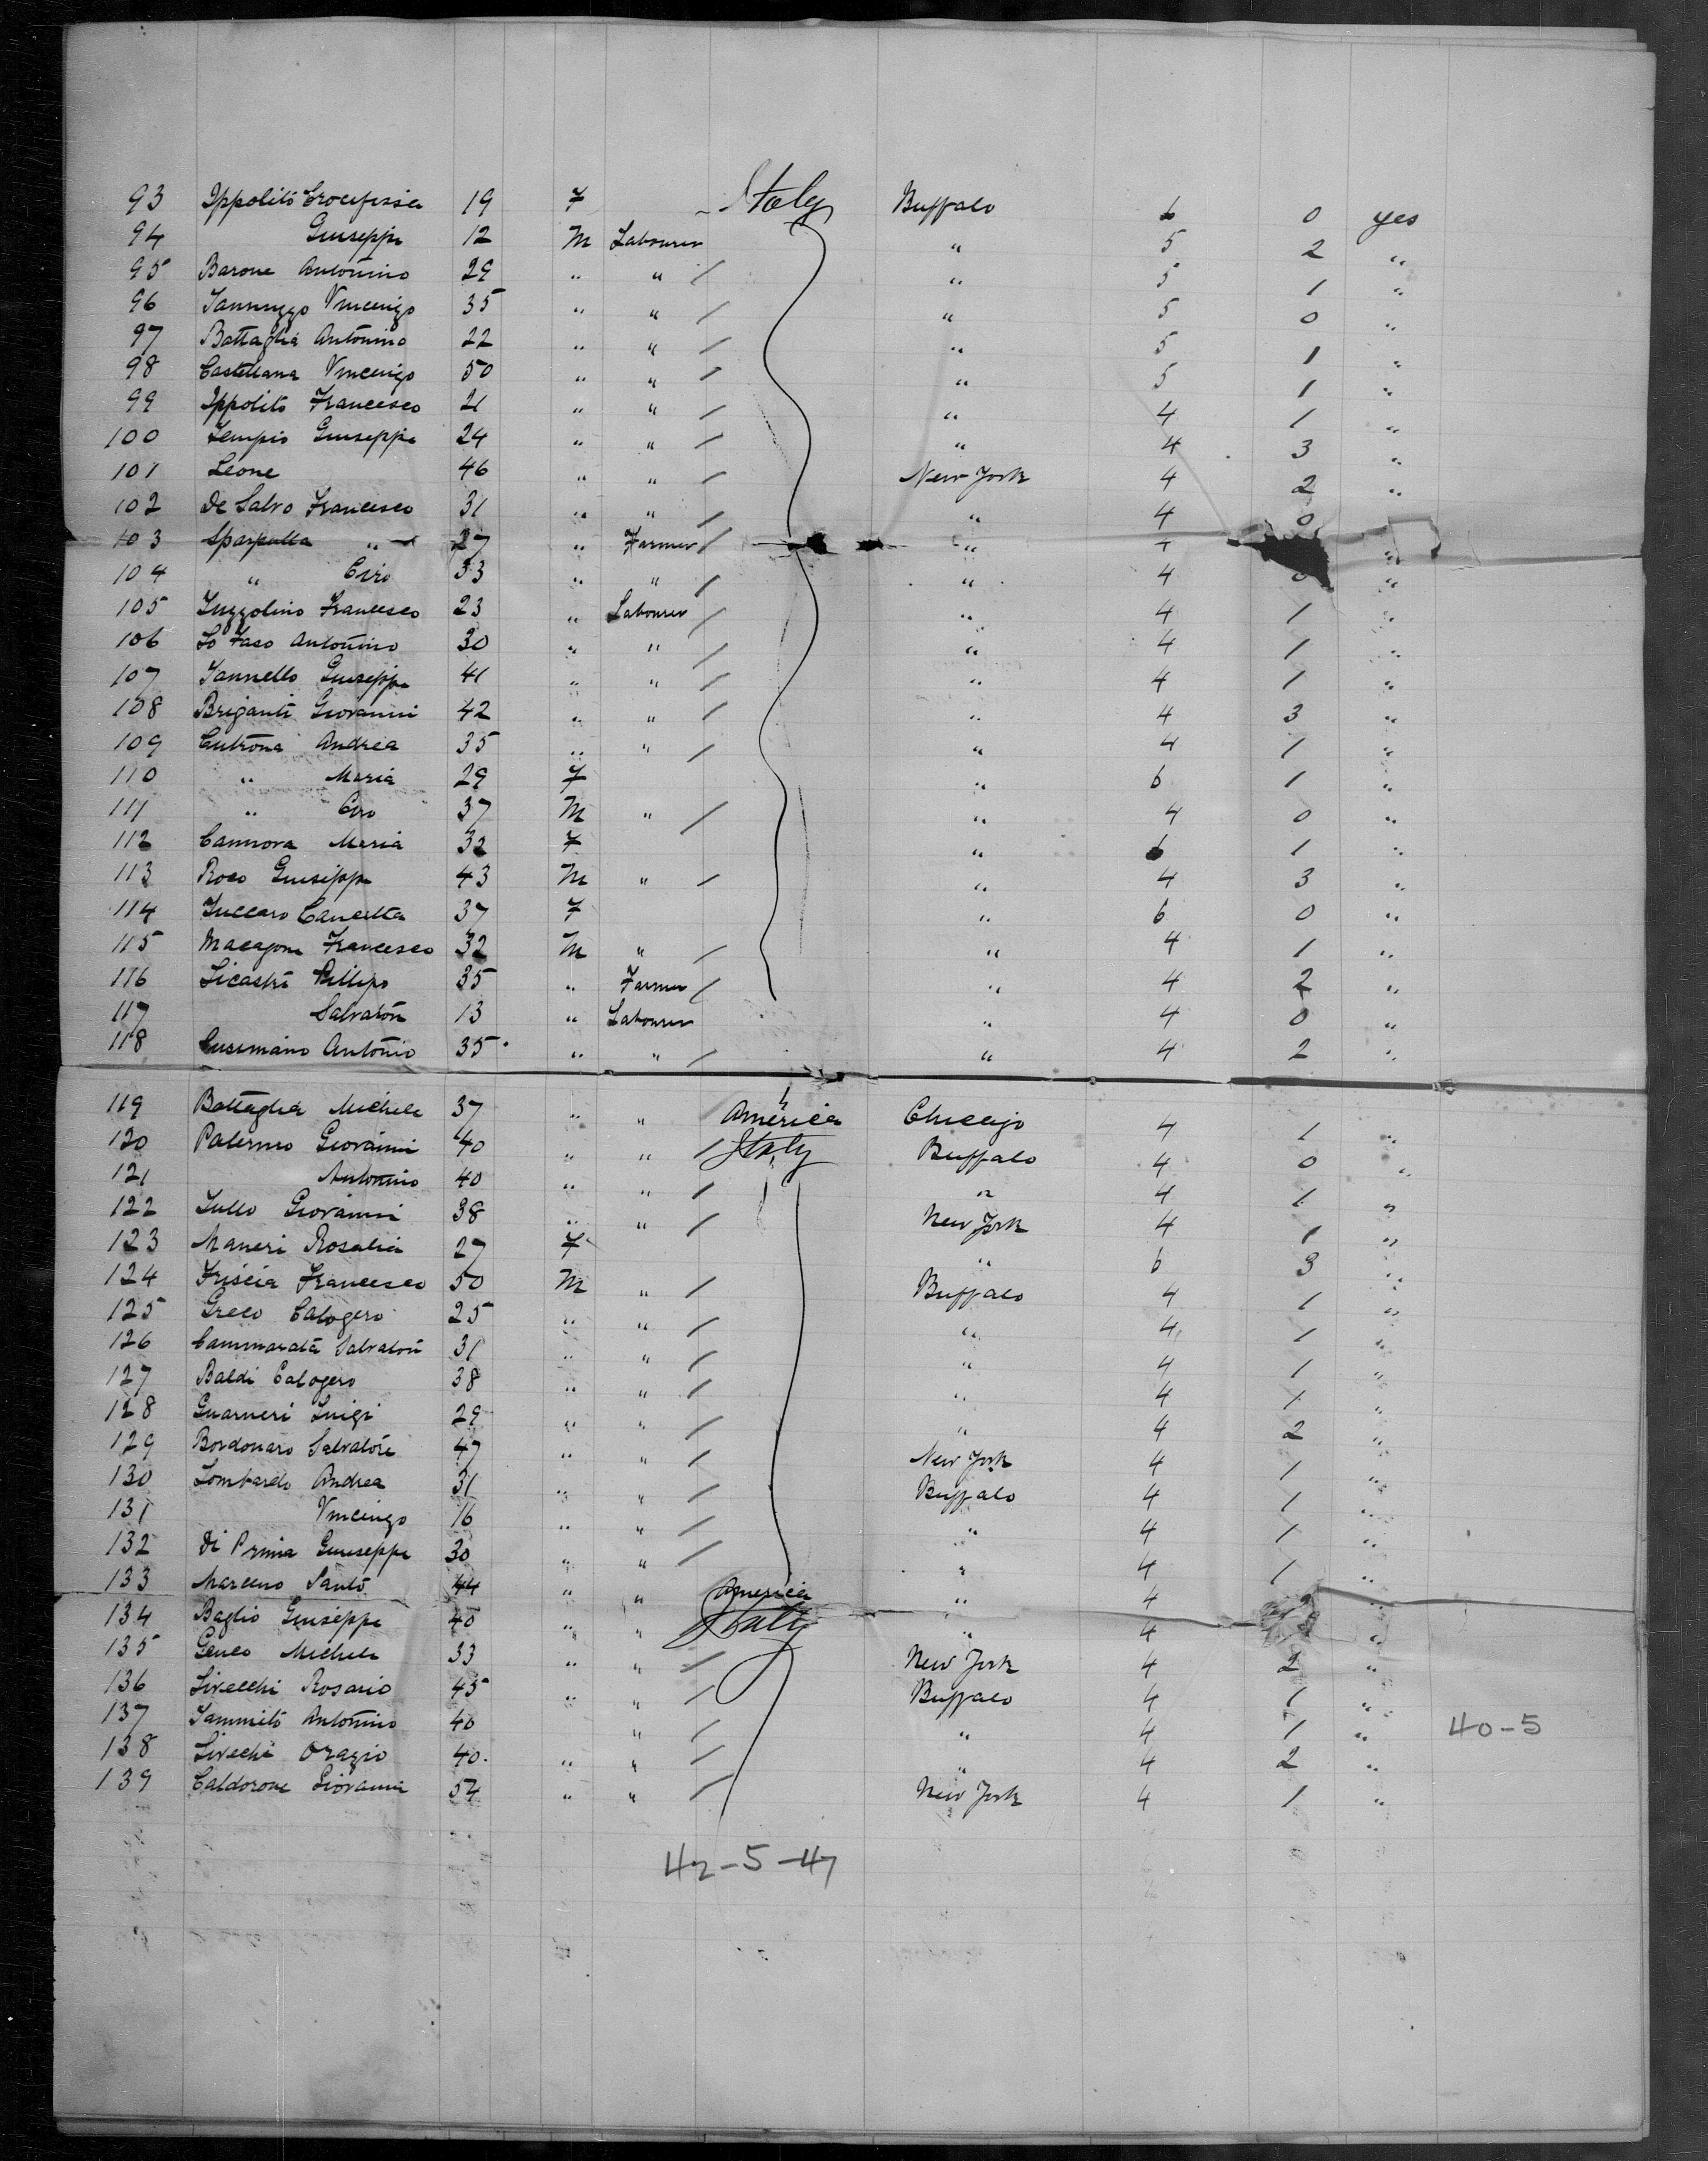 93 Ippolito Crocifissa 19 F Italy Buffalo 6 0 yes
94 Giuseppe 12 M Labourer " 5 2 "
95 Barone Antonino 29 " " / " 5 1 "
96 Iannuzzo Vincenzo 35 " " / " 5 0 "
97 Battaglia Antonino 22 " " / " 5 1 "
98 Castellana Vincenzo 50 " " / " 5 1 "
99 Ippolito Francesco 21 " " / " 4 1 "
100 Giuseppe 24 " " / " 4 3 "
101 Leone 46 " " / New York 4 2 "
102 De Salvo Francesco 31 " " / " 4 0
103 " 27 " Farmer / " "
104 " Ciro 33 " " / " 4 "
105 Francesco 23 " Labourer / " 4 1 "
106 Lo Faso Antonino 30 " " / " 4 1 "
107 Iannello Giuseppe 41 " " / " 4 1 "
108 Briganti Giovanni 42 " " / " 4 3 "
109 Cutrona Andrea 35 " " / " 4 1 "
110 " Maria 29 F " 6 1 "
111 " Ciro 37 M " / " 4 0 "
112 Cannova Maria 32 F " 6 1 "
113 Roco Giuseppe 43 M " / " 4 3 "
114 Zuccaro 37 F " 6 0 "
115 Francesco 32 M " / " 4 1 "
116 Licastri 35 " Farmer / " 4 2 "
117 Salvatore 13 " Labourer " 4 0 "
118 Cusimano Antonio 35 " " / " 4 2 "
119 Battaglia Michele 37 " " America Chicago 4 1 "
120 Palermo Giovanni 40 " " / Italy Buffalo 4 0 "
121 Antonino 40 " " / " 4 1 "
122 Giovanni 38 " " / New York 4 1 "
123 Maneri Rosalia 27 F " 6 3 "
124 Friscia Francesco 50 M " / Buffalo 4 1 "
125 Greco Calogero 25 " " / " 4 1 "
126 Cammarata Salvatore 31 " " / " 4 1 "
127 Baldi Calogero 38 " " / " 4 1 "
128 Guarneri Luigi 29 " " / " 4 2 "
129 Bordonaro Salvatore 47 " " / New York 4 1 "
130 Lombardo Andrea 31 " " / Buffalo 4 1 "
131 Vincenzo 16 " " / " 4 1 "
132 Di Prima Giuseppe 30 " " / " 4 1 "
133 Marceno Santo 44 " " America " 4 "
134 Baglio Giuseppe 40 " " Italy " 4 "
135 Genco Michele 33 " " / New York 4 2 "
136 Livecchi Rosario 45 " " / Buffalo 4 1 "
137 Sammito Antonino 40 " / " 4 1 " 40-5
138 Livechi Orazio 40. " " / " 4 2 "
139 Caldorone Giovanni 54 " " / New York 4 1 "
42-5-47